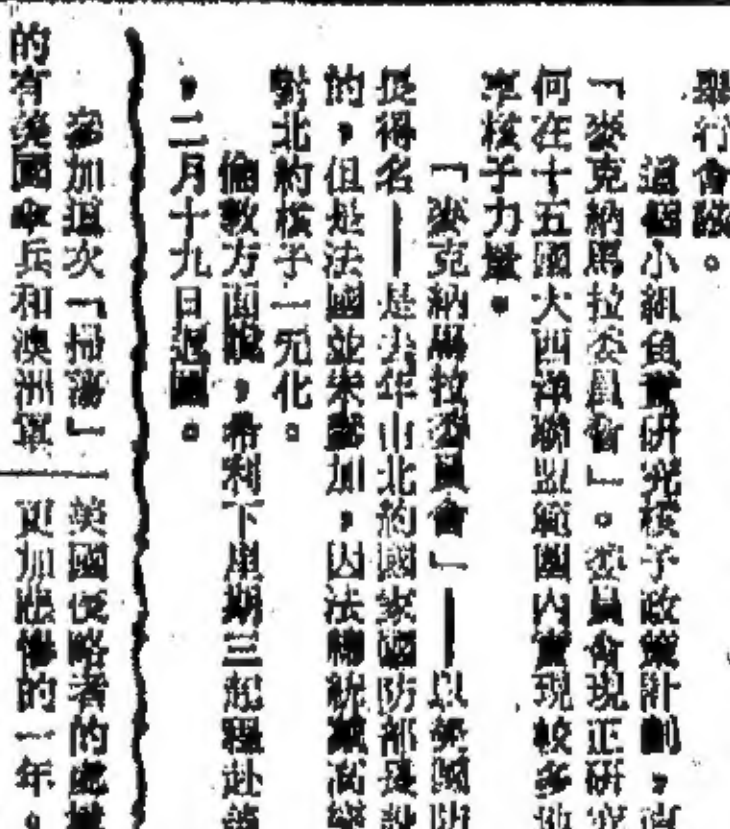 舉行會議。
這個小組負責研究核子政策計劃,
「麥克納馬拉委員會」。委員會現正研究
何在十五國大西洋聯盟範圍內實現較多地
享核子力量。
「麥克納馬拉委員會」——以美國防
長得名——是去年由北約國家國防部長
的,但是法國並未參加,因法總統戴高樂
對北約核子一元化。
倫敦方面說,希利下星期三起程赴
,二月十九日返國。
參加這次「掃蕩」
的有美國傘兵和澳洲軍
美國侵略者的處
更加悲慘的一年。